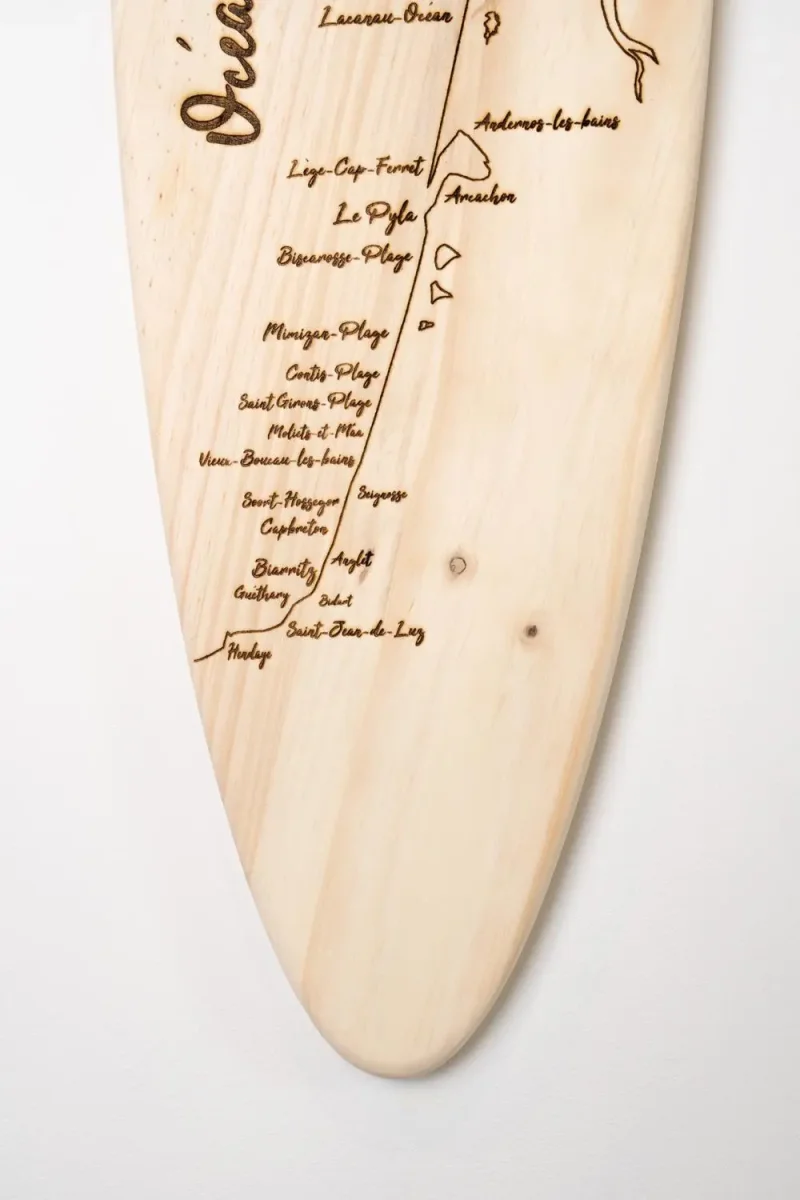 Océa
Lacanau-Océan
Andernos-les-bains
Lège-Cap-Ferret
Arcachon
Le Pyla
Biscarosse-Plage
Mimizan-Plage
Contis-Plage
Saint Girons-Plage
Moliets-et-Maa
Vieux-Boucau-les-bains
Seignosse
Soort-Hossegor
Capbreton
Anglet
Biarritz
Guéthary
Bidart
Saint-Jean-de-Luz
Hendaye